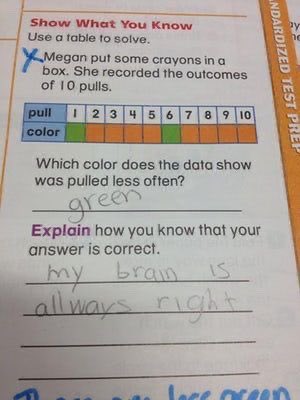 Show What You Know
Use a table to solve.
X Megan put some crayons in a
box. She recorded the outcomes
of 10 pulls.
pull 1 2 3 4 5 6 7 8 9 10
color
Which color does the data show
was pulled less often?
green
Explain how you know that your
answer is correct.
my brain is
allways right
There are less green
NDARDIZED TEST PREP